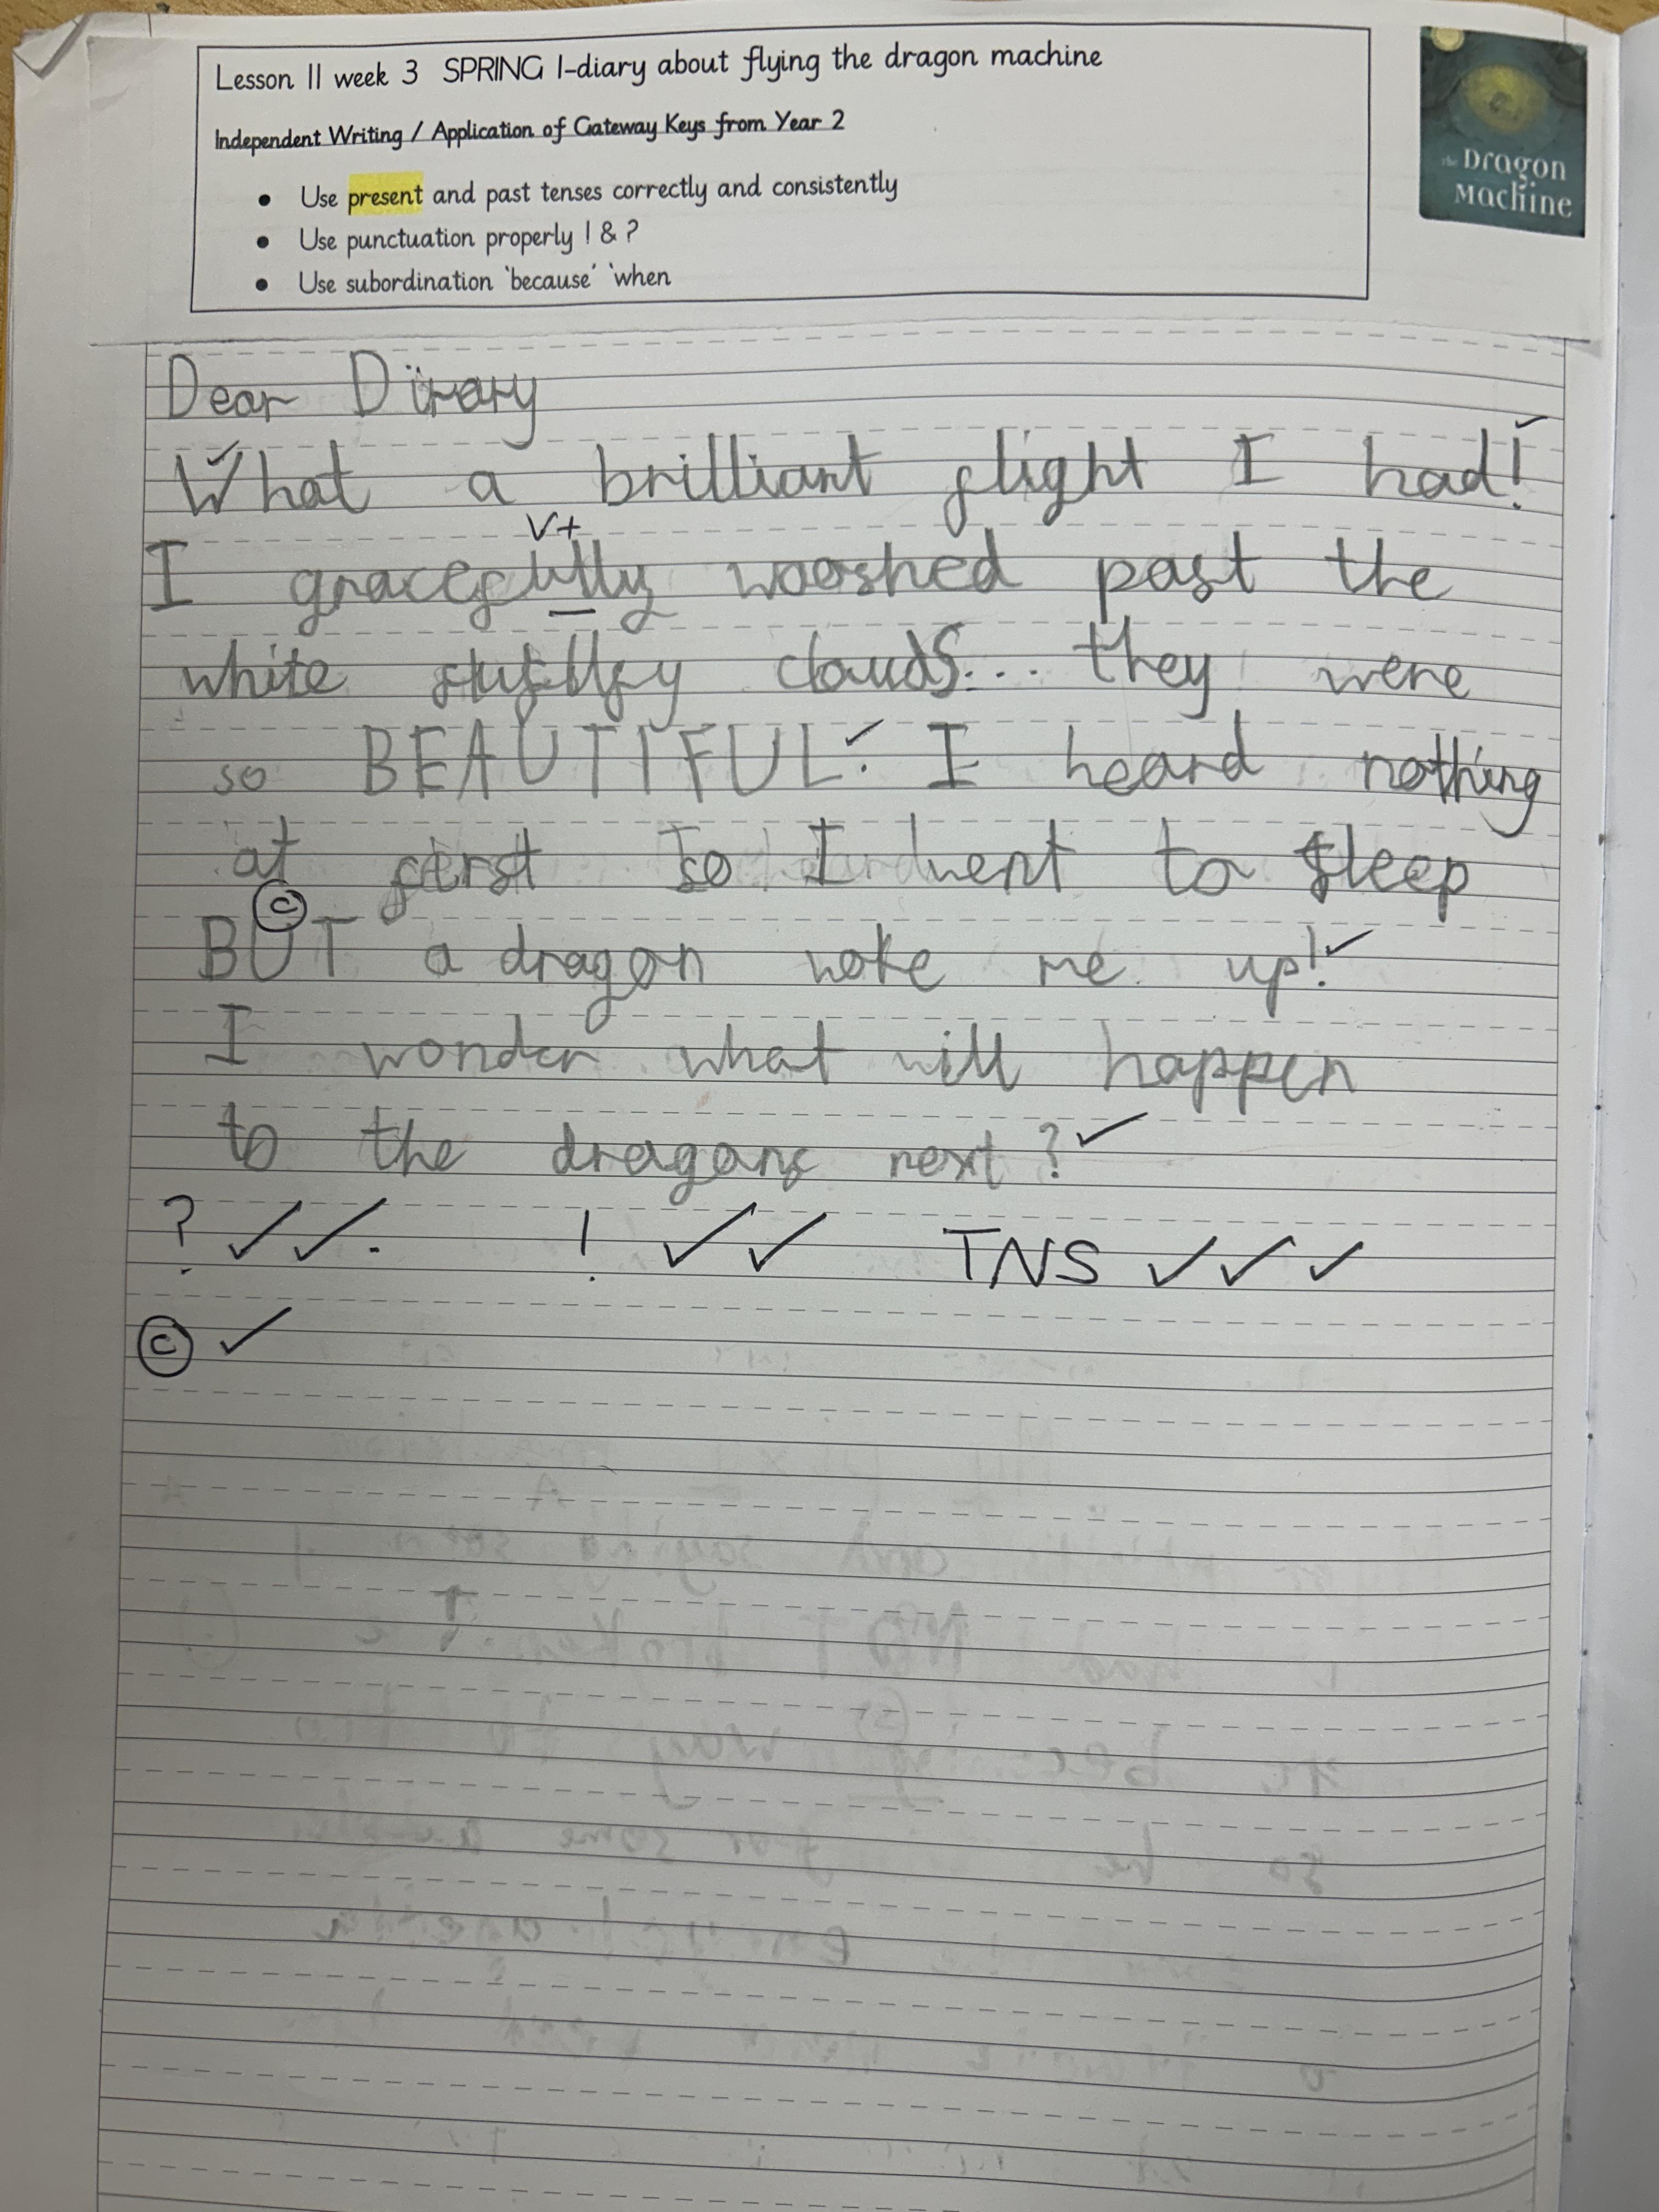 Lesson 11 week 3 SPRING 1-diary about flying the dragon machine
Independent Writing / Application of Gateway Keys from Year 2
• Use present and past tenses correctly and consistently
• Use punctuation properly ! & ?
• Use subordination 'because' 'when
the Dragon
Machine
Dear Dirary
What a brilliant flight I had!
V+
I gracefully wooshed past the
white clouds... they were
so BEAUTIFUL. I heard nothing
at first so I went to sleep
©
BUT a dragon woke me up!
I wonder what will happen
to the dragons next?
? ✓✓. ! ✓✓ TNS ✓✓✓
© ✓